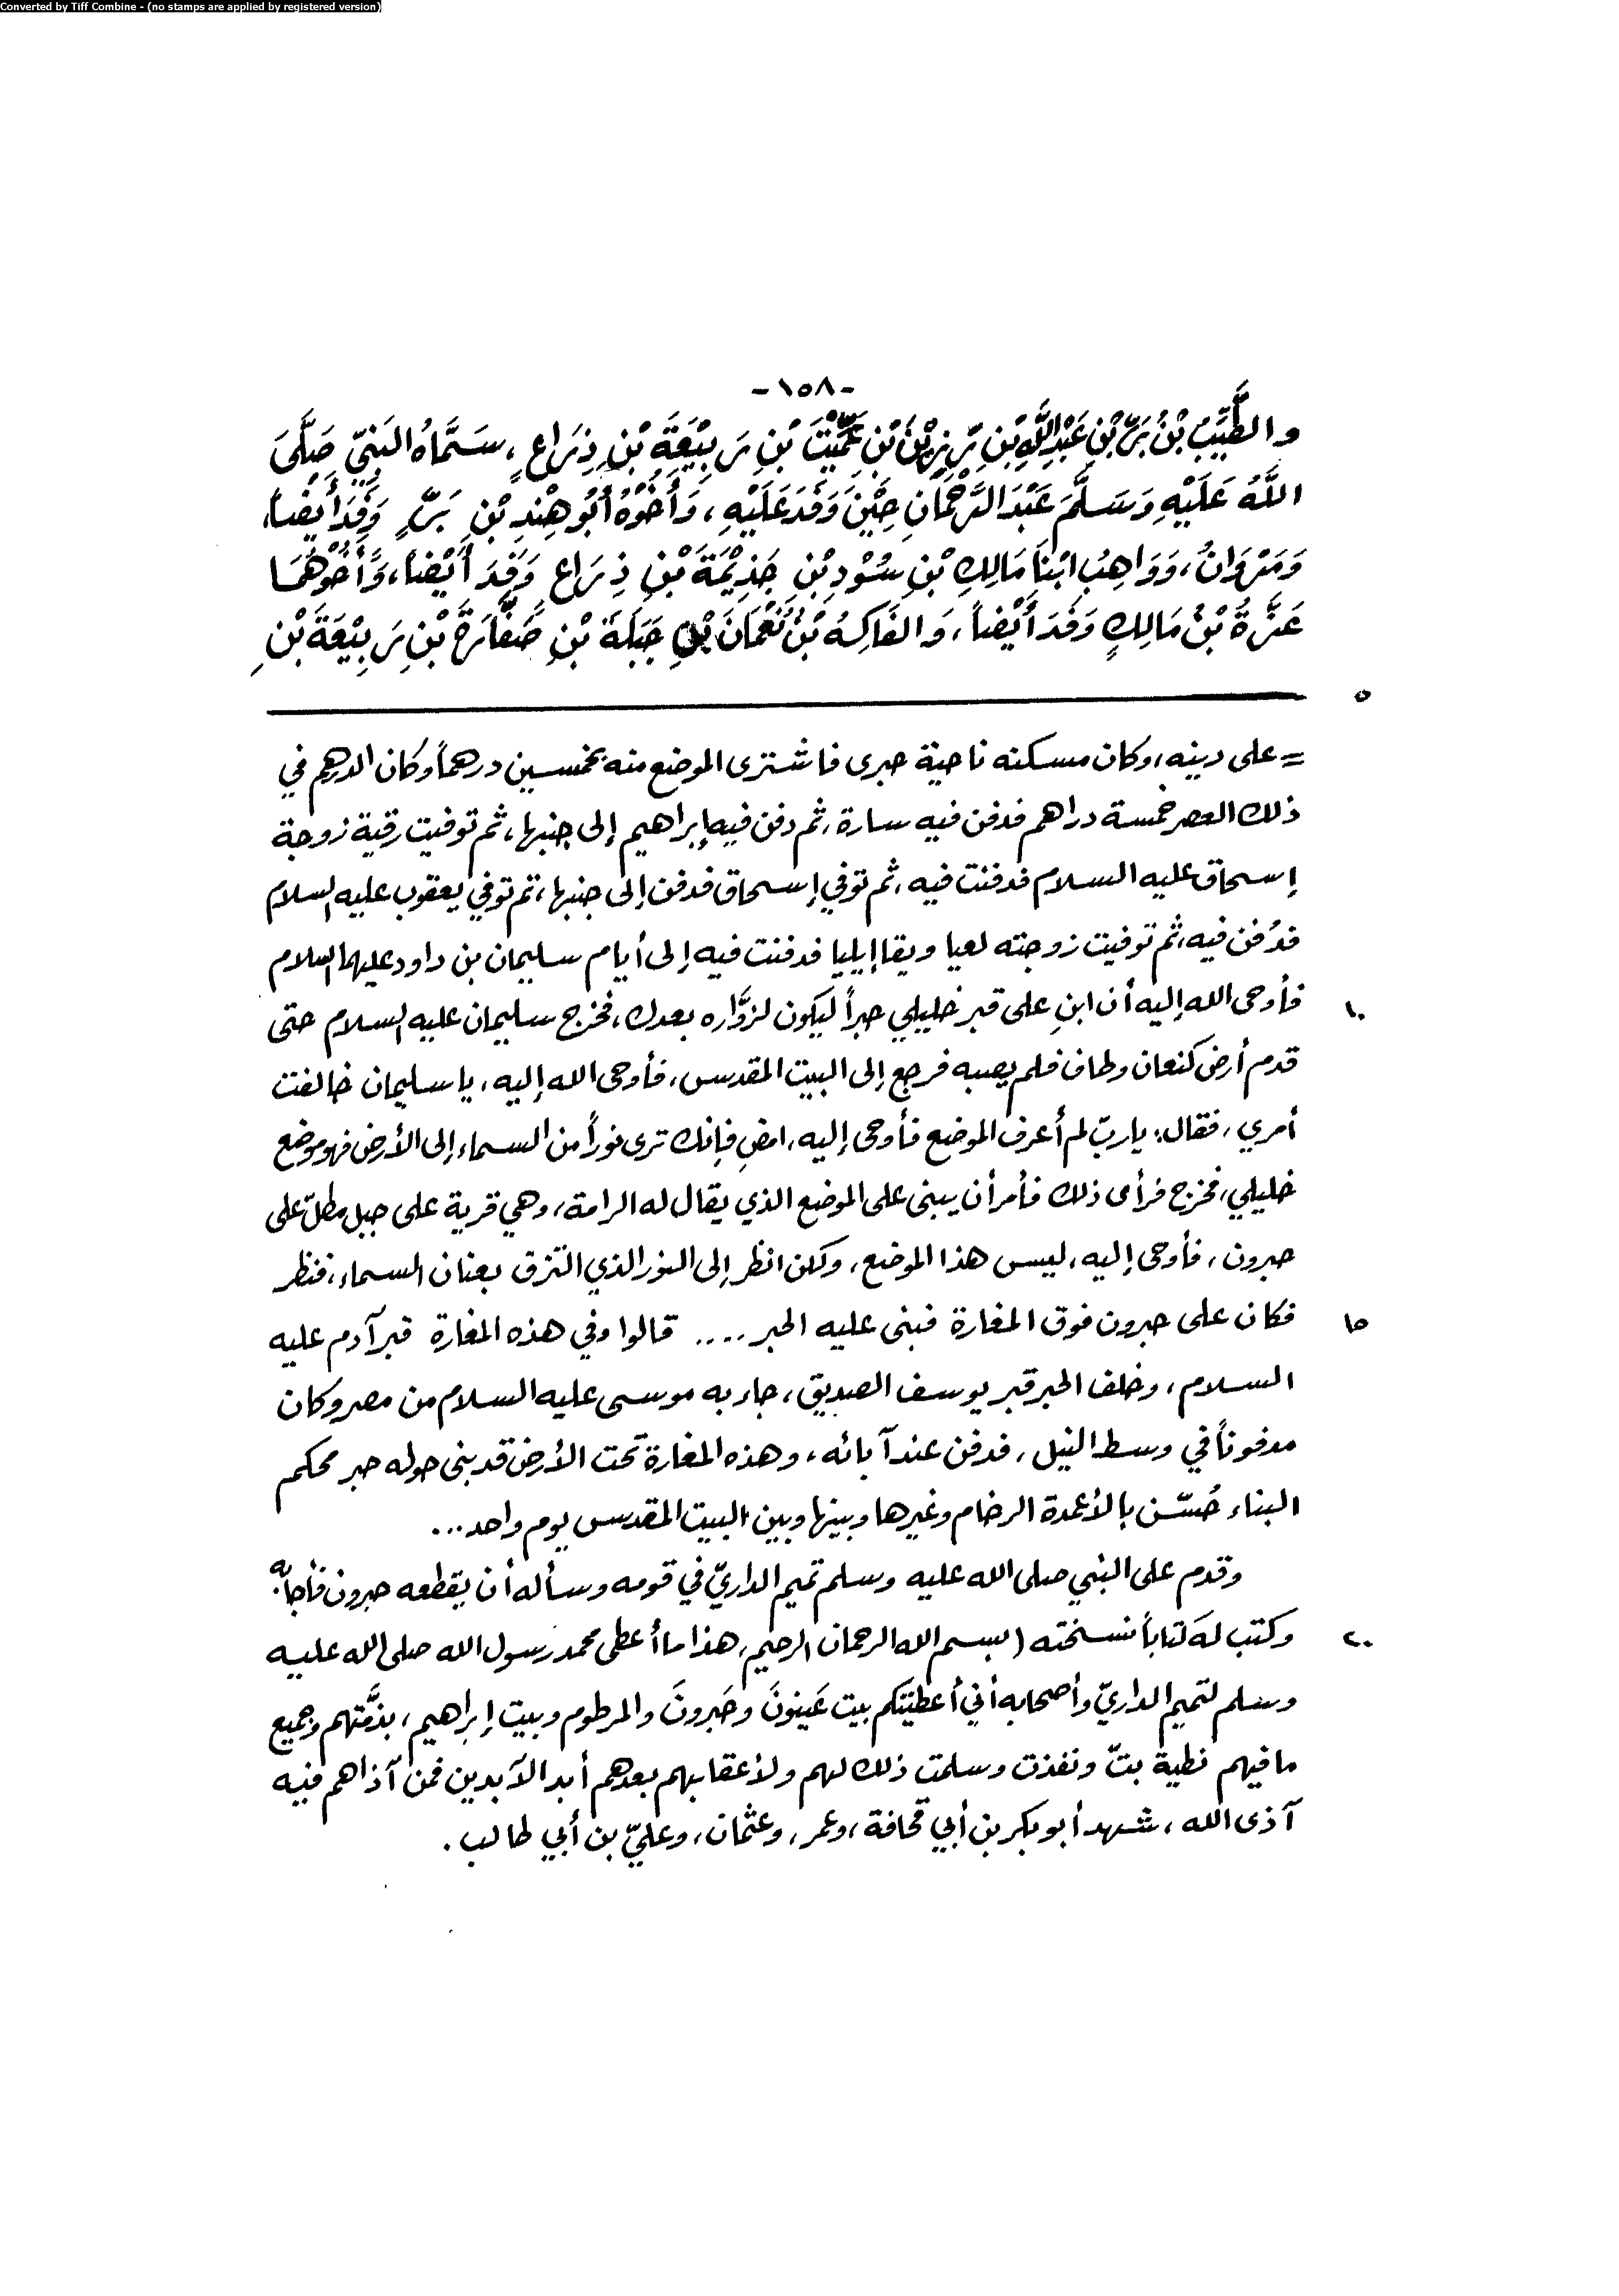 Converted by Tiff Combine - (no stamps are applied by registered version)
-١٥٨-
والطَّيِّبُ بْنُ بَرِّ بْنِ عَبْدِ اللَّهِ بْنِ رَزِيْنَ بْنِ عِمِّيْتَ بْنِ رَبِيْعَةَ بْنِ ذِرَاعٍ، سَمَّاهُ النَبِيّ صَلَّىَ
اللَّهُ عَلَيْهِ وَسَلَّمَ عَبْدَ الرَّحْمَانِ حِيْنَ وَفَدَ عَلَيْهِ، وَأَخُوْهُ أَبُو هِنْدِ بْنِ بَرٍّ وَفَدَ أَيْضاً،
وَمَرْوَانُ، وَوَاهِبُ ابْنَا مَالِكِ بْنِ سُوْدِ بْنِ جَذِيْمَةَ بْنِ ذِرَاعٍ وَفَدَ أَيْضاً، وَأَخُوْهُمَا
عَزَّةُ بْنُ مَالِكٍ وَفَدَ أَيْضاً، وَالفَاكِهُ بْنُ نُعْمَانَ بْنِ جَبَلَةَ بْنِ صَفَّارَةَ بْنِ رَبِيْعَةَ بْنِ
٥
= على دينه، وكان مسكنه ناحية حبرى فاشترى الموضع منه بخمسين درهماً وكان الدرهم في
ذلك العصر خمسة دراهم فدفن فيه سارة، ثم دفن فيه إبراهيم إلى جنبها، ثم توفيت رقية زوجة
إسحاق عليه السلام فدفنت فيه، ثم توفي إسحاق فدفن إلى جنبها، ثم توفي يعقوب عليه السلام
فدُفن فيه، ثم توفيت زوجته لعيا ويقا إيليا فدفنت فيه إلى أيام سليمان بن داود عليهما السلام
١٠ فأوحى الله إليه أن ابنِ على قبر خليلي حبراً ليكون لزوَّاره بعدك، فخرج سليمان عليه السلام حتى
قدم أرض كنعان وطاف فلم يصبه فرجع إلى البيت المقدس، فأوحى الله إليه، يا سليمان خالفت
أمري، فقال: يا ربّ لم أعرف الموضع فأوحى إليه، امضِ فإنك ترى نوراً من السماء إلى الأرض فهو موضع
خليلي، فخرج فرأى ذلك فأمر أن يبنى على الموضع الذي يقال له الرامة، وهي قرية على جبل مطلّ على
حبرون، فأوحى إليه، ليس هذا الموضع، ولكن انظر إلى النور الذي التزق بعنان السماء، فنظر
١٥ فكان على حبرون فوق المغارة فبنى عليه الحبر .... قالوا وفي هذه المغارة قبر آدم عليه
السلام، وخلف الحبر قبر يوسف الصديق، جاء به موسى عليه السلام من مصر وكان
مدفوناً في وسط النيل، فدفن عند آبائه، وهذه المغارة تحت الأرض قد بنى حوله حبر محكم
البناء حُسّن بالأعمدة الرخام وغيرها وبينها وبين البيت المقدس يوم واحد...
وقدم على النبي صلى الله عليه وسلم تميم الداريّ في قومه وسأله أن يقطعه حبرون فأجابه
٢٠ وكتب له كتاباً نسخته (بسم الله الرحمان الرحيم، هذا ما أعطى محمد رسول الله صلى الله عليه
وسلم لتميم الداريّ وأصحابه أني أعطيتكم بيت عَينونَ وحَبرونَ والمرطوم وبيت إبراهيم، بذمَّتهم وجميع
ما فيهم نطية بتّ ونفذت وسلمت ذلك لهم ولأعقابهم بعدهم أبد الآبدين فمن آذاهم فيه
آذى الله، شهد أبو بكر بن أبي قحافة، وعمر، وعثمان، وعليّ بن أبي طالب.